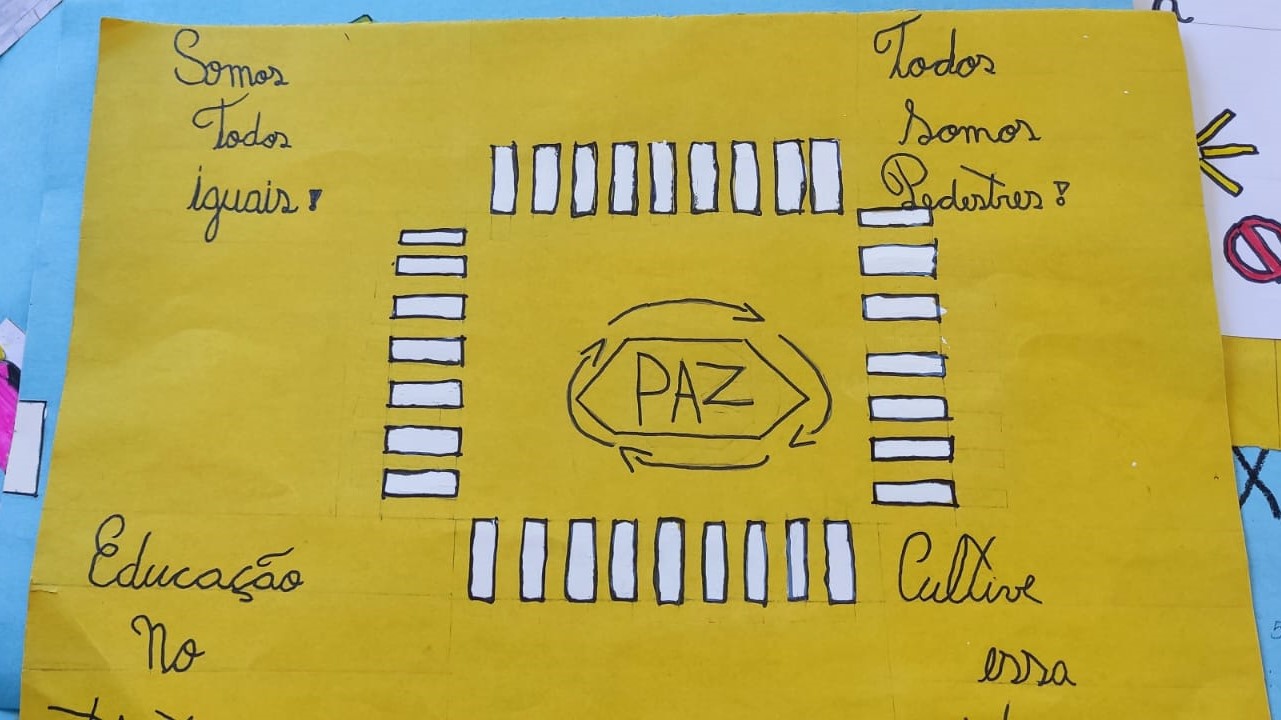 Somos
Todos
iguais!
Todos
Somos
Pedestres!
PAZ
Educação
No
Cultive
essa